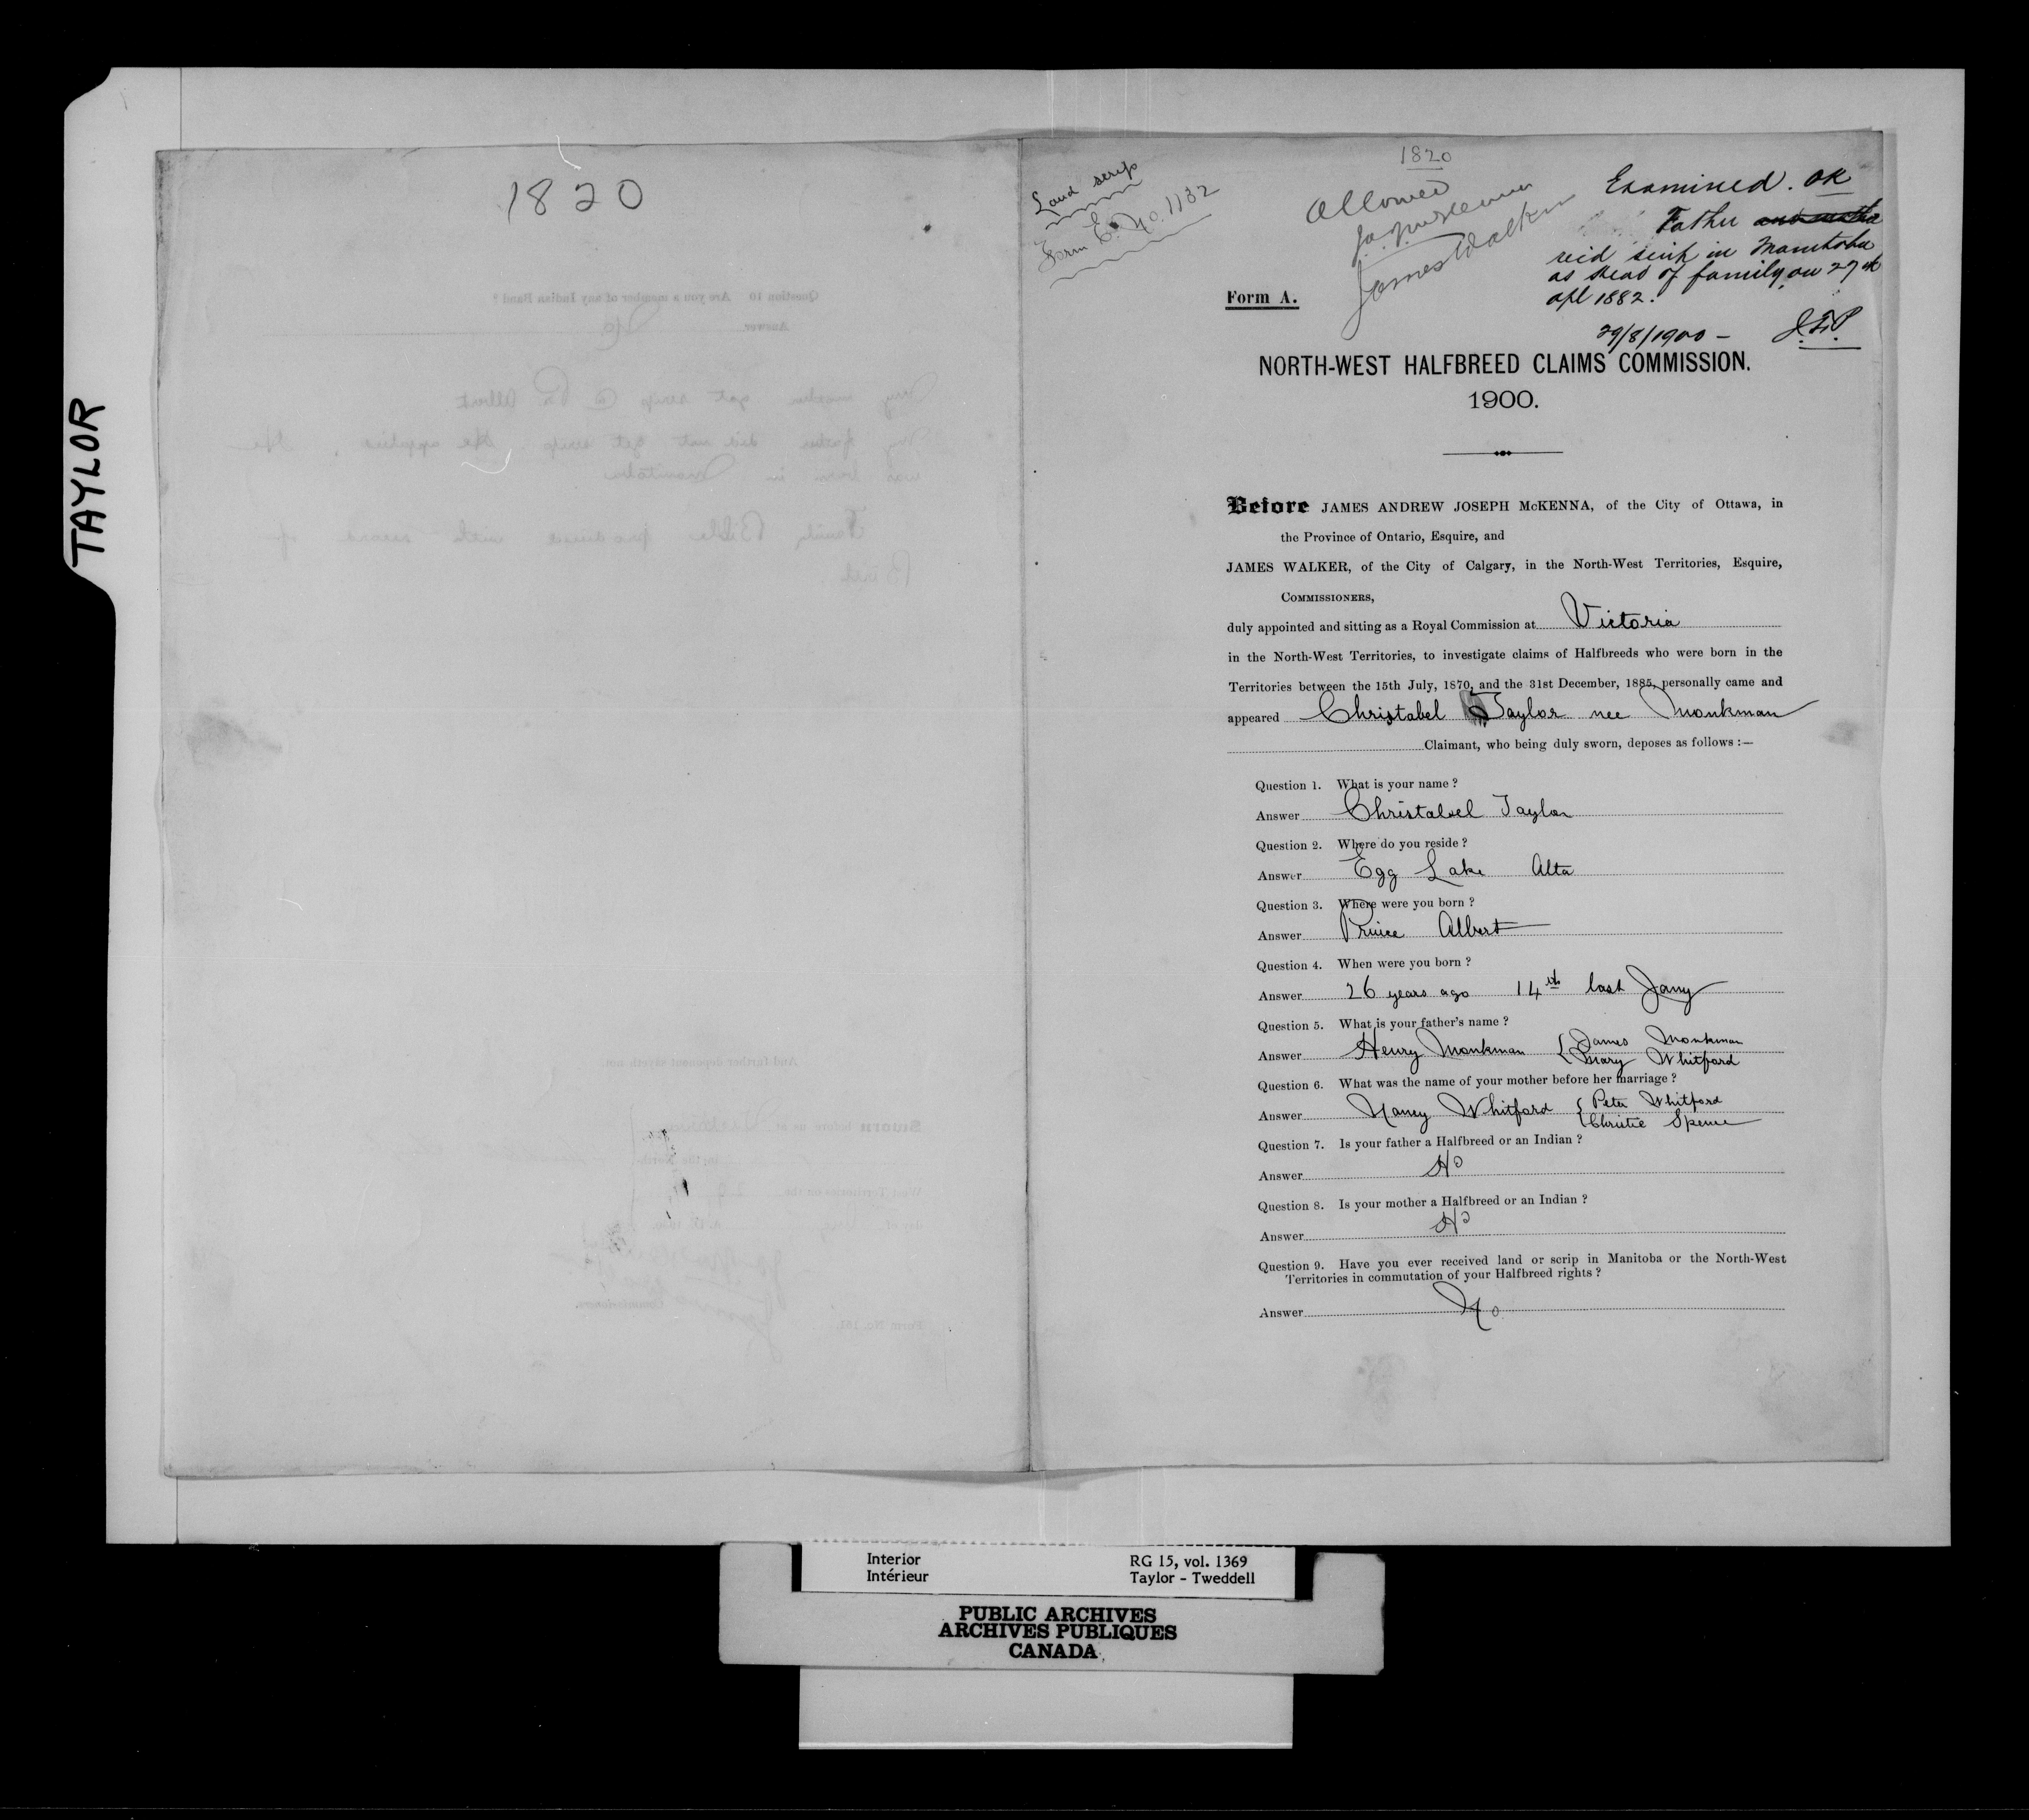 TAYLOR
1820
Land scrip
Form E. No. 1132
1820
Allowed
James Walker
Examined. OK
Father and mother
rec'd scrip in Manitoba
as Head of family on 27th
Apl 1882.
29/8/1900 –
Form A.
NORTH-WEST HALFBREED CLAIMS COMMISSION.
1900.
Before JAMES ANDREW JOSEPH McKENNA, of the City of Ottawa, in
the Province of Ontario, Esquire, and
JAMES WALKER, of the City of Calgary, in the North-West Territories, Esquire,
COMMISSIONERS,
duly appointed and sitting as a Royal Commission at Victoria
in the North-West Territories, to investigate claims of Halfbreeds who were born in the
Territories between the 15th July, 1870, and the 31st December, 1885, personally came and
appeared Christabel Taylor nee Monkman
Claimant, who being duly sworn, deposes as follows :—
Question 1. What is your name ?
Answer Christabel Taylor
Question 2. Where do you reside ?
Answer Egg Lake Alta
Question 3. Where were you born ?
Answer Prince Albert
Question 4. When were you born ?
Answer 26 years ago 14th last Jany
Question 5. What is your father's name ?
Answer Henry Monkman { James Monkman
Mary Whitford
Question 6. What was the name of your mother before her marriage ?
Answer Nancy Whitford { Peter Whitford
Christie Spence
Question 7. Is your father a Halfbreed or an Indian ?
Answer No
Question 8. Is your mother a Halfbreed or an Indian ?
Answer No
Question 9. Have you ever received land or scrip in Manitoba or the North-West
Territories in commutation of your Halfbreed rights ?
Answer No
Interior
Intérieur
RG 15, vol. 1369
Taylor - Tweddell
PUBLIC ARCHIVES
ARCHIVES PUBLIQUES
CANADA